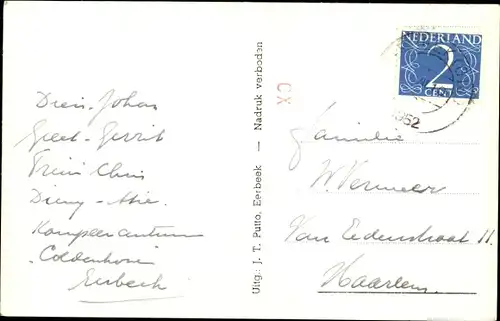 Dien-Johan
Geert-Gerrit
Trini Chris
Dieny-
Kampeercentrum
"Coldenhove"
Eerbeek
Uitg.: J. T. Putto, Eerbeek — Nadruk verboden
CX
NEDERLAND
2
CENT
1952
Familie
W. Vermeer
Van Eedenstraat 11
Haarlem